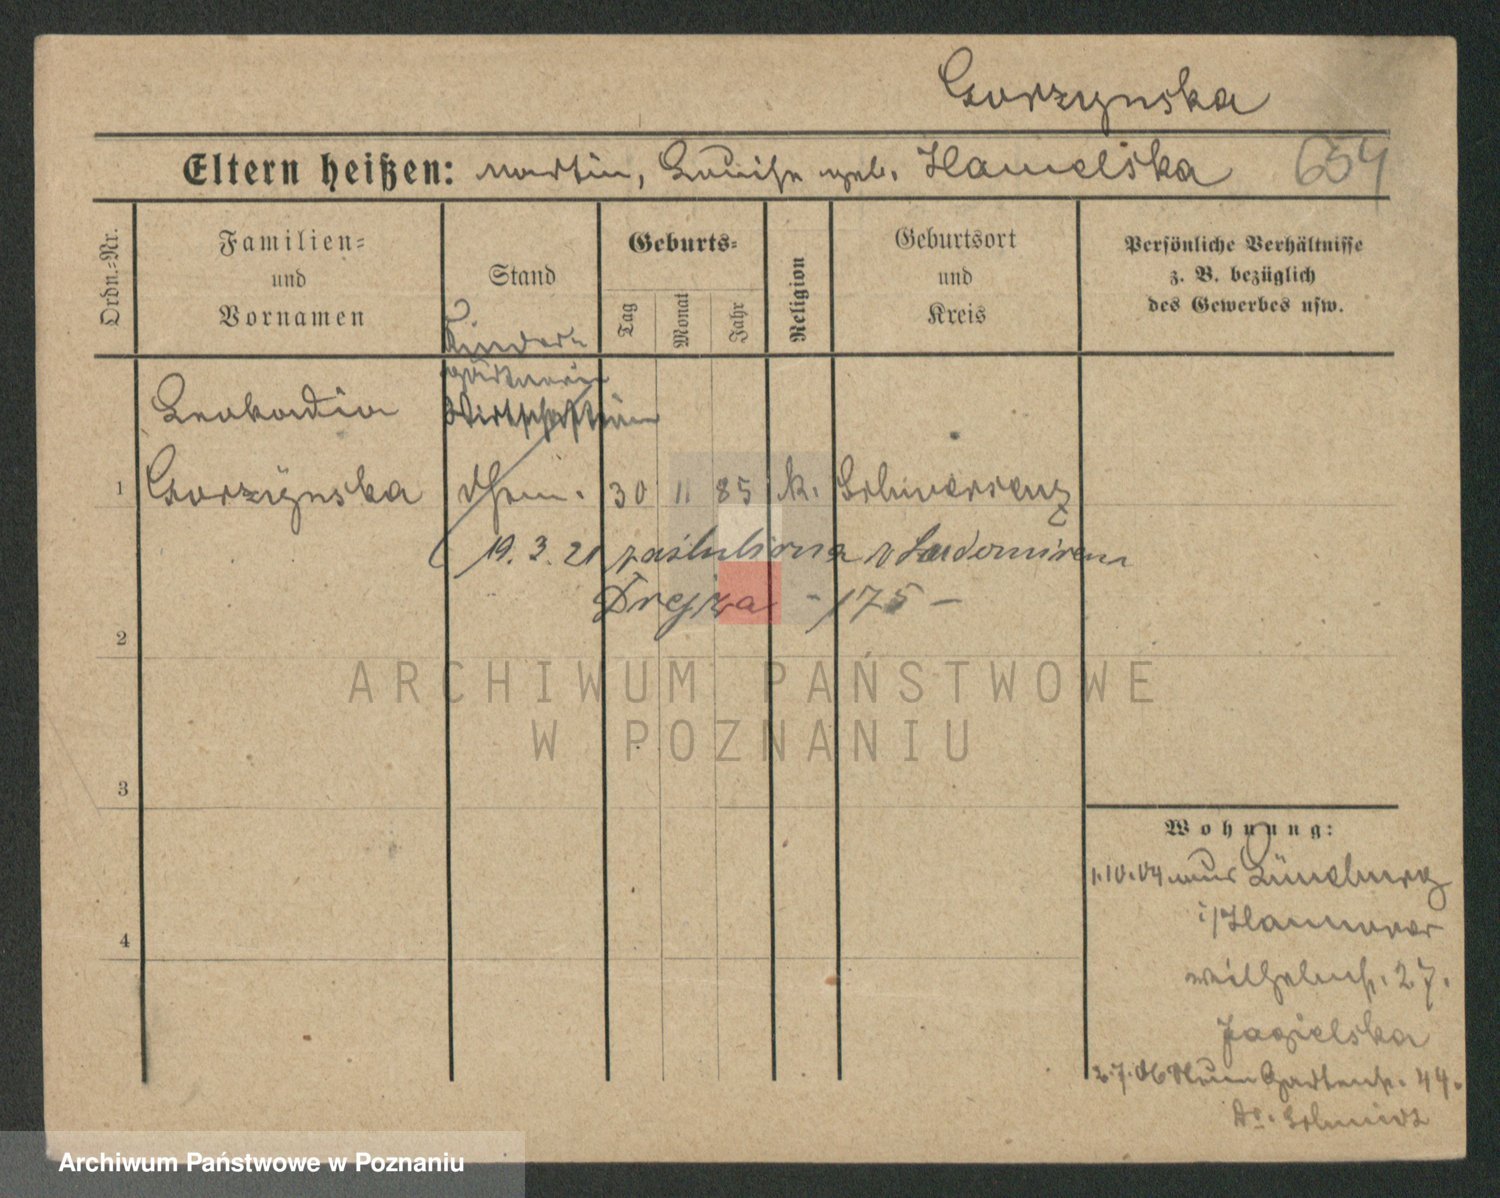 Gorzynska
Eltern heißen: Martin, Luise geb. Hamelska 654
Ordn.=Nr.
Familien=
und
Vornamen
Stand
Geburts=
Tag
Monat
Jahr
Religion
Geburtsort
und
Kreis
Persönliche Verhältnisse
z. B. bezüglich
des Gewerbes usw.
Kinder=
gärtnerin
Leokadia
Wirtschafterin
1 Gorzÿnska 30 11 85 k. Schwersenz
19. 3. 21 zaślubiona
Drejza - 175 -
2
3
4
Wohnung:
1.10.04 aus Lüneburg
i/Hannover
Wilhelmstr. 27.
Jagielska
2.7.06 Neue Gartenstr. 44.
Dr. Schmidt
ARCHIWUM PAŃSTWOWE
W POZNANIU
Archiwum Państwowe w Poznaniu